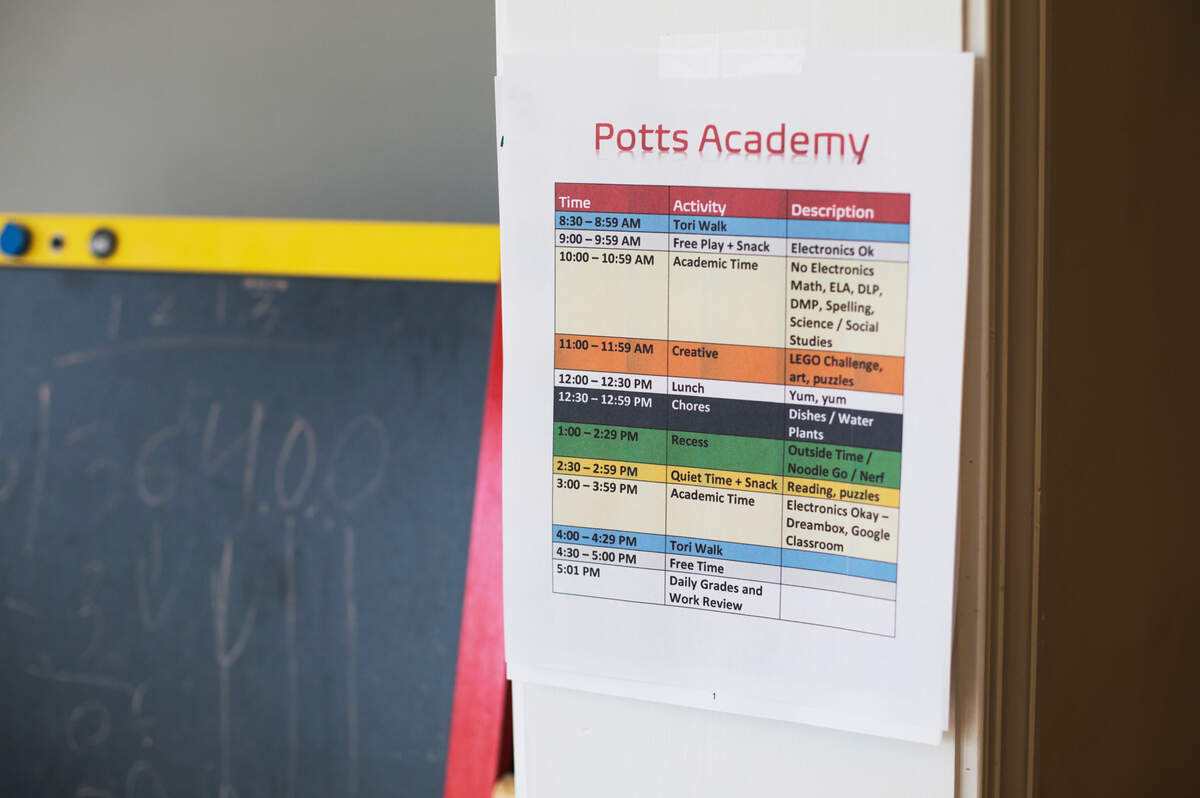 Potts Academy
Time Activity Description
8:30 – 8:59 AM Tori Walk
9:00 – 9:59 AM Free Play + Snack Electronics Ok
10:00 – 10:59 AM Academic Time No Electronics
Math, ELA, DLP,
DMP, Spelling,
Science / Social
Studies
11:00 – 11:59 AM Creative LEGO Challenge,
art, puzzles
12:00 – 12:30 PM Lunch Yum, yum
12:30 – 12:59 PM Chores Dishes / Water
Plants
1:00 – 2:29 PM Recess Outside Time /
Noodle Go / Nerf
2:30 – 2:59 PM Quiet Time + Snack Reading, puzzles
3:00 – 3:59 PM Academic Time Electronics Okay –
Dreambox, Google
Classroom
4:00 – 4:29 PM Tori Walk
4:30 – 5:00 PM Free Time
5:01 PM Daily Grades and
Work Review
1